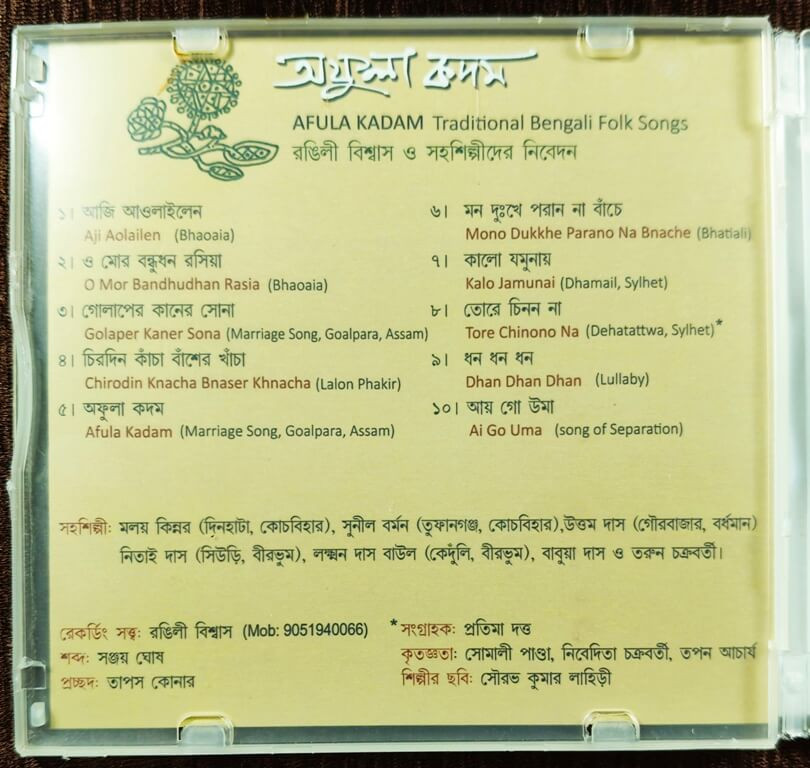 অফুলা কদম
AFULA KADAM Traditional Bengali Folk Songs
রঙিলী বিশ্বাস ও সহশিল্পীদের নিবেদন
১। আজি আওলাইলেন
Aji Aolailen (Bhaoaia)
২। ও মোর বন্ধুধন রসিয়া
O Mor Bandhudhan Rasia (Bhaoaia)
৩। গোলাপের কানের সোনা
Golaper Kaner Sona (Marriage Song, Goalpara, Assam)
৪। চিরদিন কাঁচা বাঁশের খাঁচা
Chirodin Knacha Bnaser Khnacha (Lalon Phakir)
৫। অফুলা কদম
Afula Kadam (Marriage Song, Goalpara, Assam)
৬। মন দুঃখে পরান না বাঁচে
Mono Dukkhe Parano Na Bnache (Bhatiali)
৭। কালো যমুনায়
Kalo Jamunai (Dhamail, Sylhet)
৮। তোরে চিনন না
Tore Chinono Na (Dehatattwa, Sylhet)*
৯। ধন ধন ধন
Dhan Dhan Dhan (Lullaby)
১০। আয় গো উমা
Ai Go Uma (song of Separation)
সহশিল্পী: মলয় কিন্নর (দিনহাটা, কোচবিহার), সুনীল বর্মন (তুফানগঞ্জ, কোচবিহার),উত্তম দাস (গৌরবাজার, বর্ধমান)
নিতাই দাস (সিউড়ি, বীরভুম), লক্ষ্মন দাস বাউল (কেদুঁলি, বীরভুম), বাবুয়া দাস ও তরুন চক্রবর্তী।
রেকর্ডিং সত্ত্ব: রঙিলী বিশ্বাস (Mob: 9051940066)
শব্দ: সঞ্জয় ঘোষ
প্রচ্ছদ: তাপস কোনার
*সংগ্রাহক: প্রতিমা দত্ত
কৃতজ্ঞতা: সোমালী পাণ্ডা, নিবেদিতা চক্রবর্তী, তপন আচার্য
শিল্পীর ছবি: সৌরভ কুমার লাহিড়ী